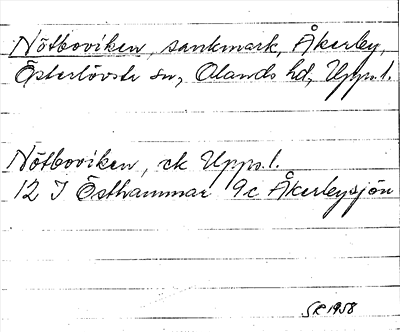 Nötboviken, sankmark, Åkerley,
Österlövsta sn, Olands hd, Upps. l.
Nötboviken, ek Upps. l.
12 I Östhammar 9c Åkerleysjön
SR 1958